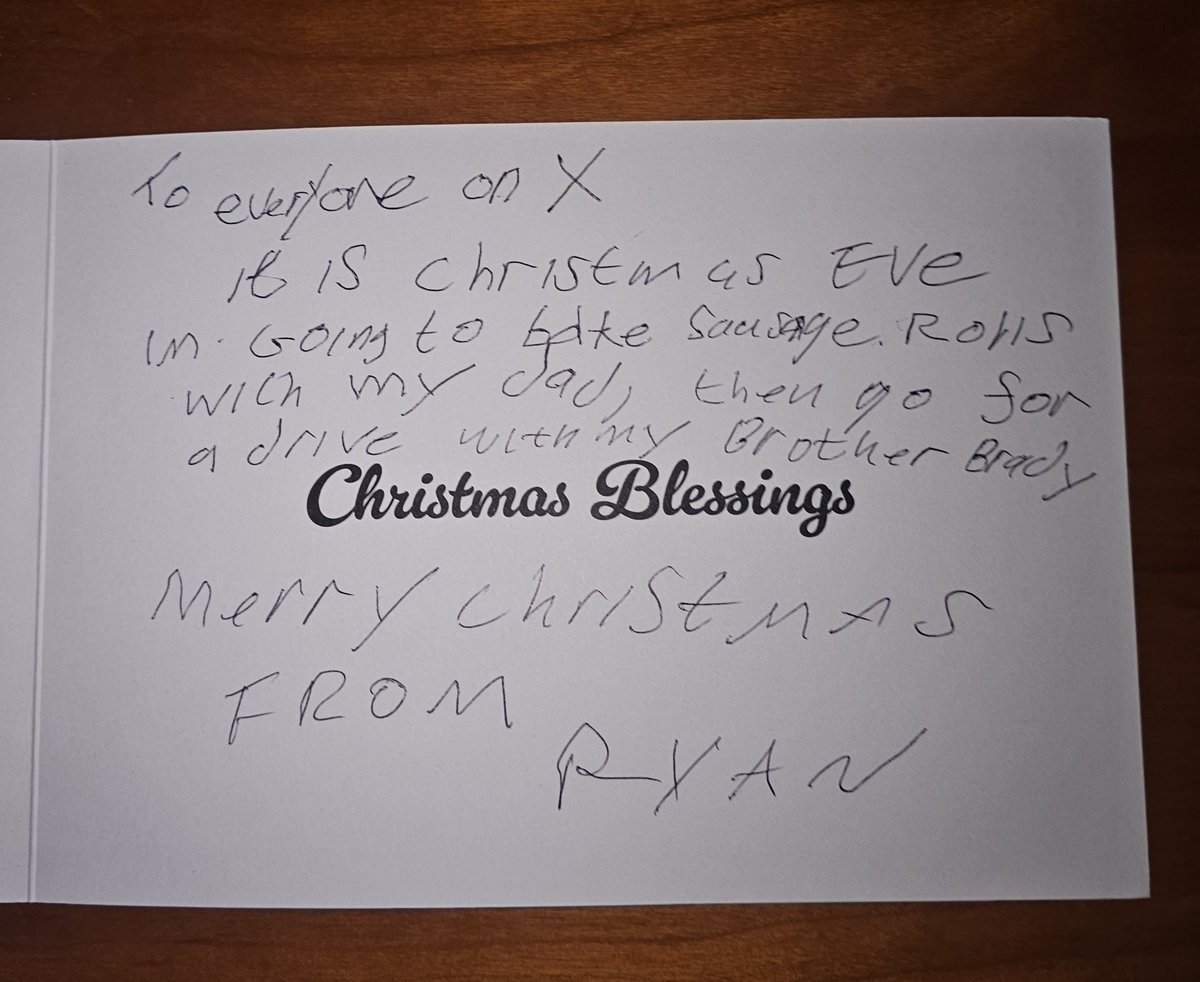 To everyone on X
it is christmas Eve
im going to bake Sausage. Rolls
with my dad, then go for
a drive with my Brother Brady
Christmas Blessings
Merry christmas
FROM
RYAN